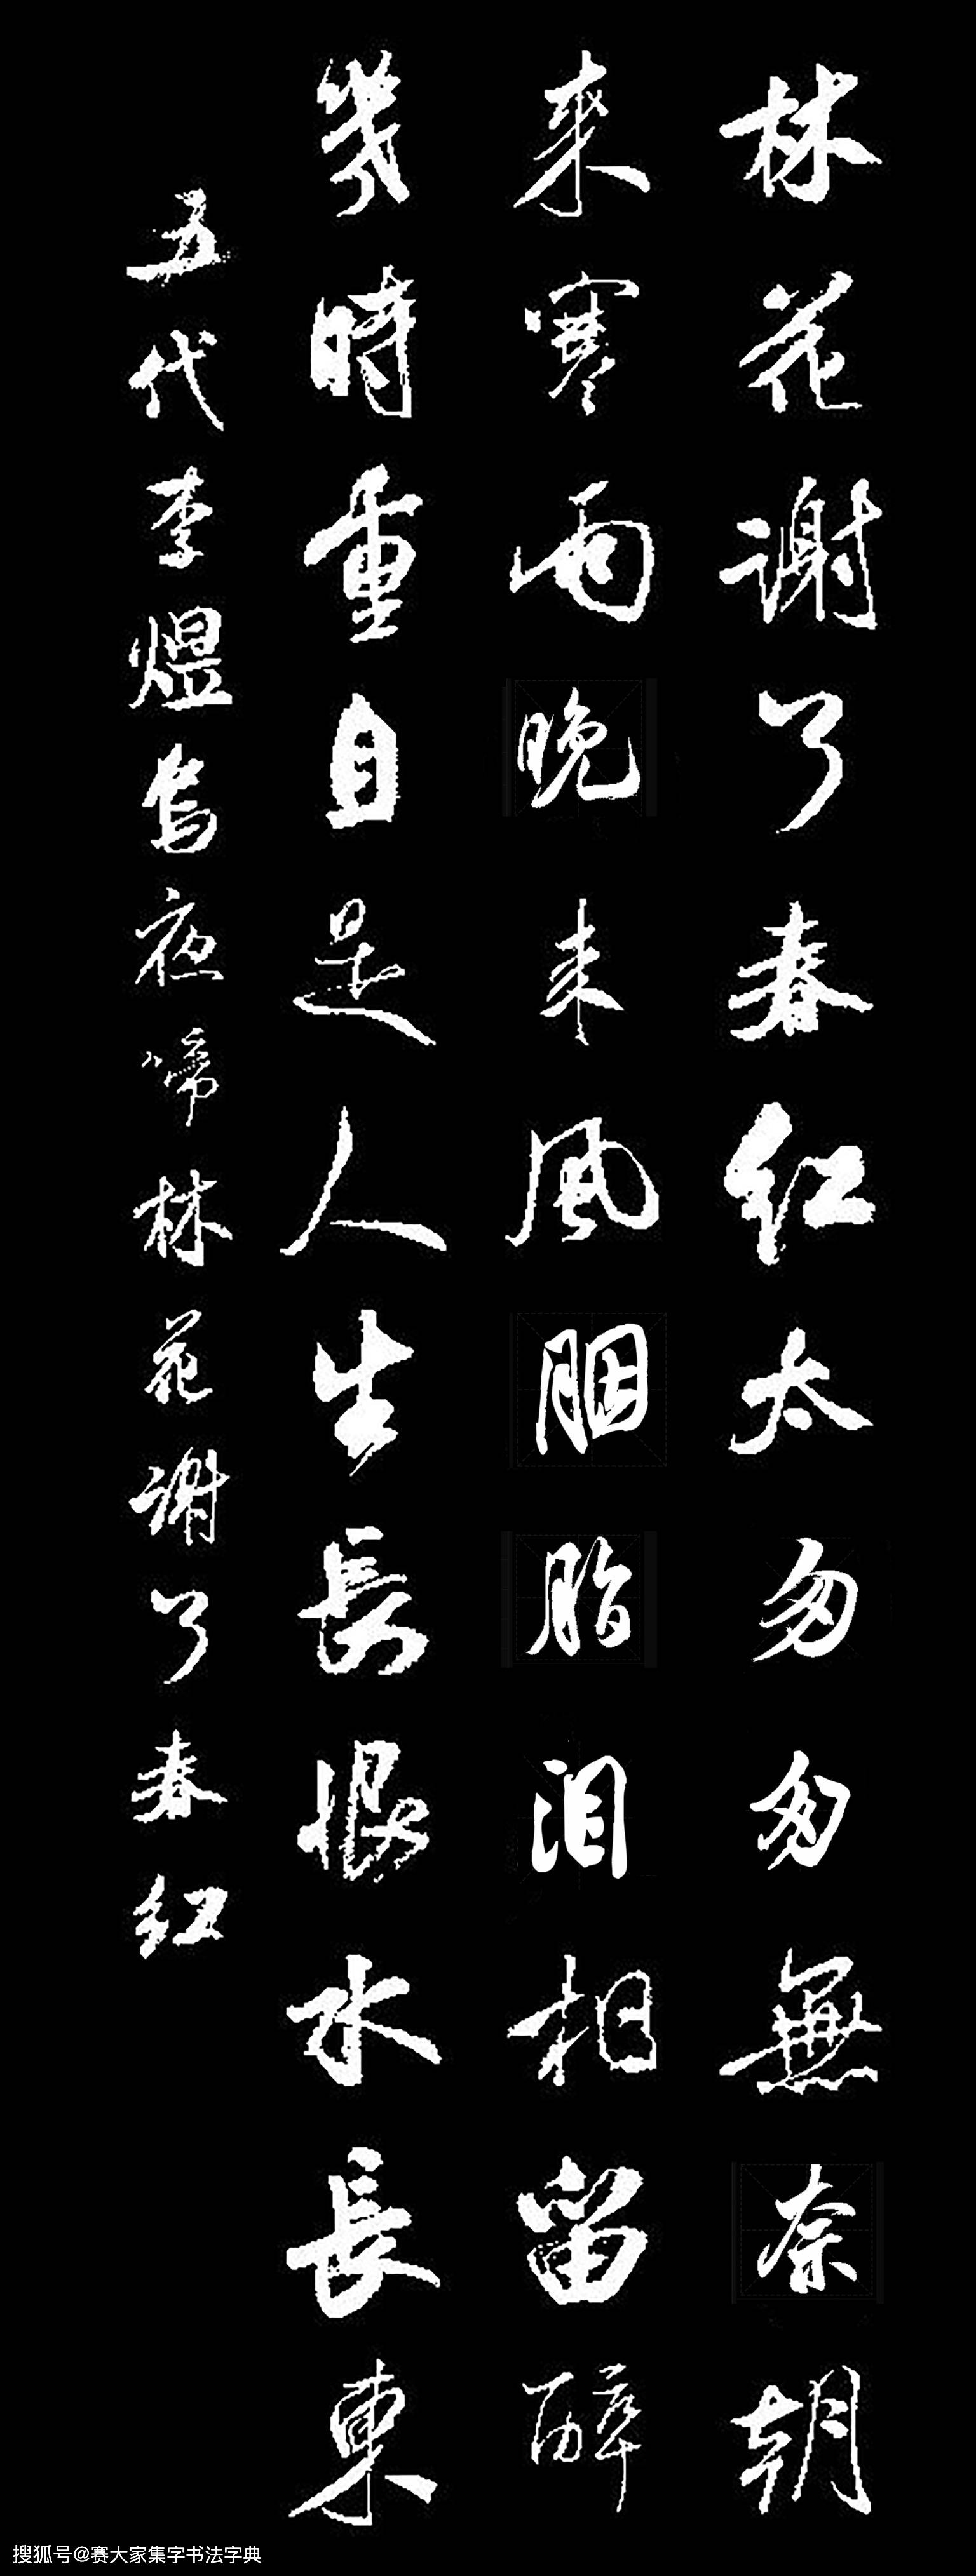 林花谢了春红太匆匆無奈朝
來寒雨晚来風胭脂泪相留醉
幾時重自是人生長恨水長東
五代李煜烏夜啼林花谢了春红
搜狐号@赛大家集字书法字典